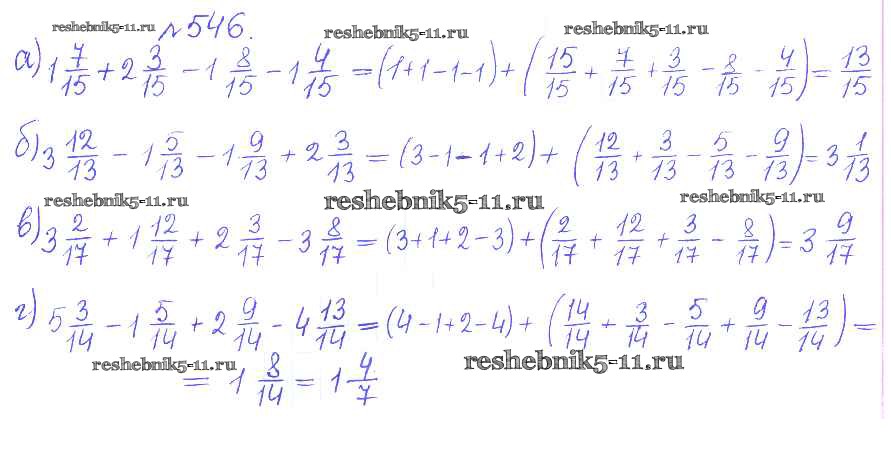 reshebnik5-11.ru №546. reshebnik5-11.ru reshebnik5-11.ru
а) 1 7/15 + 2 3/15 - 1 8/15 - 1 4/15 = (1+1-1-1) + (15/15 + 7/15 + 3/15 - 8/15 - 4/15) = 13/15
б) 3 12/13 - 1 5/13 - 1 9/13 + 2 3/13 = (3-1-1+2) + (12/13 + 3/13 - 5/13 - 9/13) = 3 1/13
reshebnik5-11.ru reshebnik5-11.ru reshebnik5-11.ru
в) 3 2/17 + 1 12/17 + 2 3/17 - 3 8/17 = (3+1+2-3) + (2/17 + 12/17 + 3/17 - 8/17) = 3 9/17
г) 5 3/14 - 1 5/14 + 2 9/14 - 4 13/14 = (4-1+2-4) + (14/14 + 3/14 - 5/14 + 9/14 - 13/14) =
reshebnik5-11.ru reshebnik5-11.ru
= 1 8/14 = 1 4/7